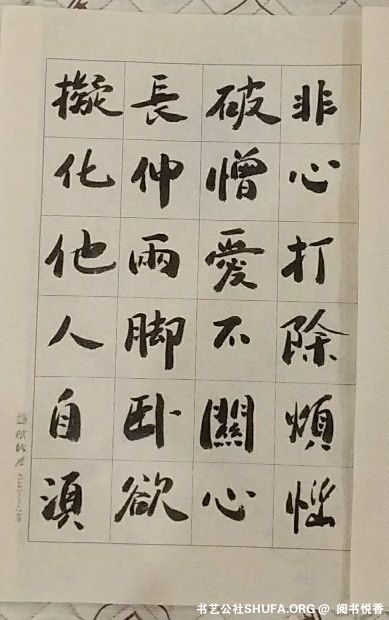 非心打除煩惱
破憎愛不關心
長伸兩脚卧欲
擬化他人自須
书艺公社SHUFA.ORG @ 阅书悦香